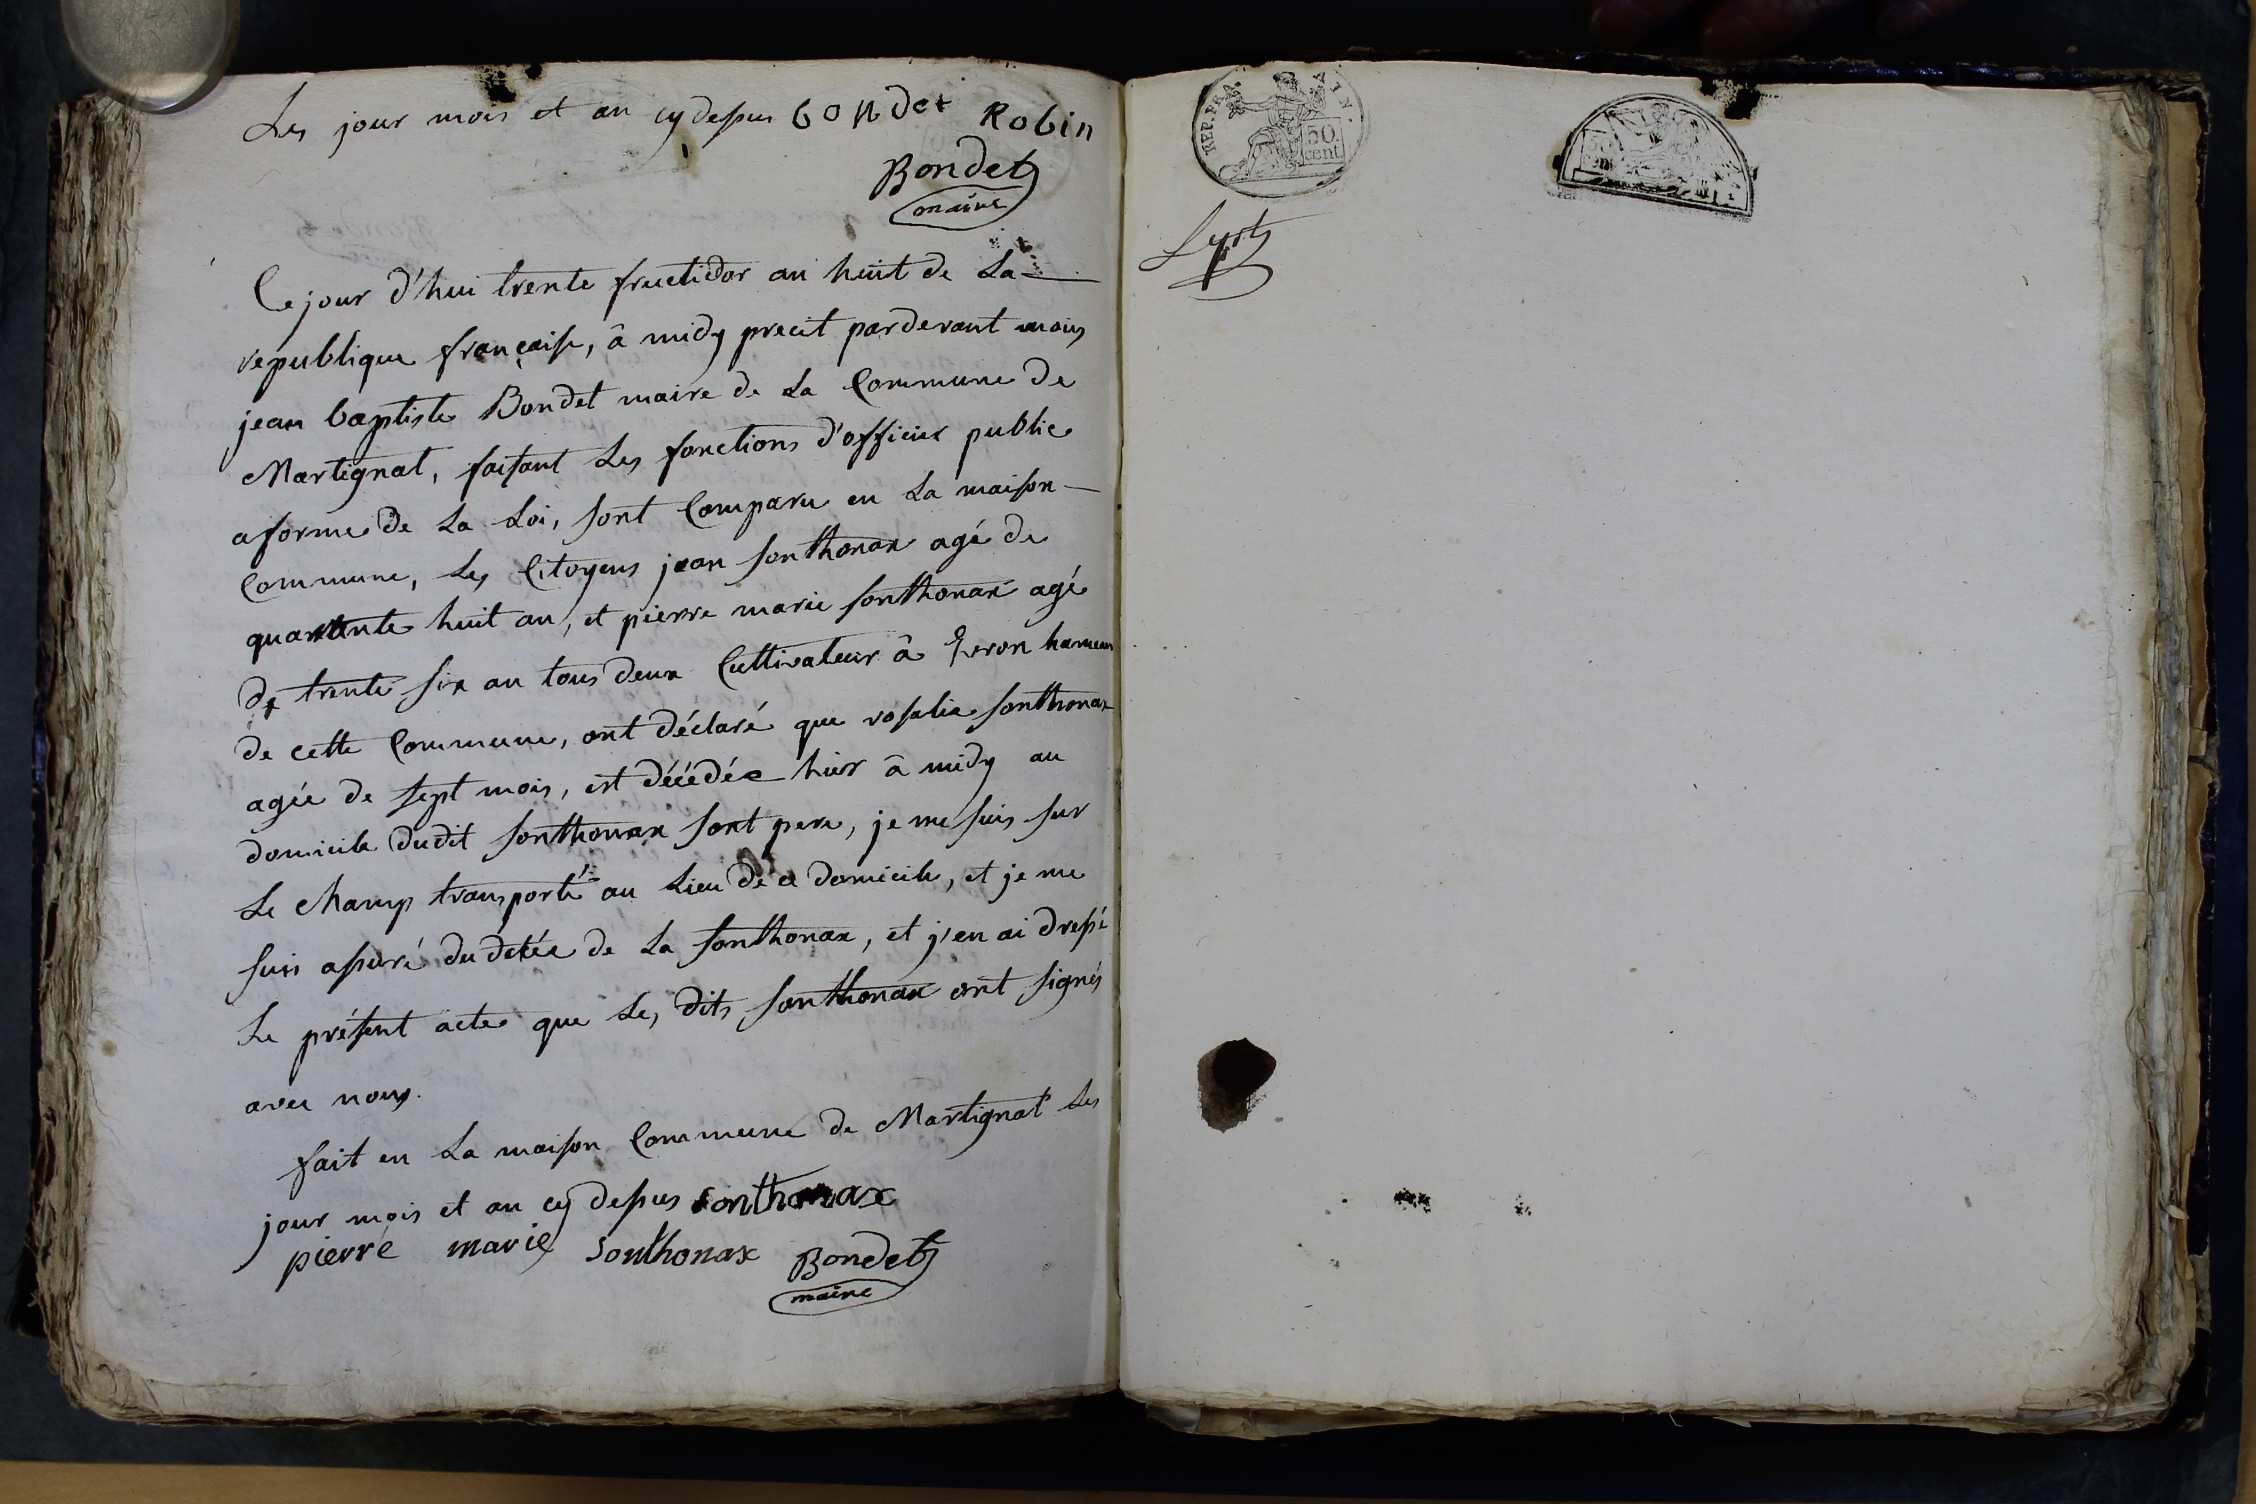 Les jour mois et an cy depus bondet Robin
Bondet
maire
Ce jour d'hui trente fructidor an huit de La
republique françaiſe, â midy precit pardevant mois
jean baptiste Bondet maire de La Commune de
Martignat, faiſant Les fonctions d'officier public
a forme de La Loi, sont Comparu en La maiſon
Commune, Les Citoyens jean sonthonax agé de
quarante huit an, et pierre marie sonthonax agé
de trente six an tous deux Cultivateur â hameau
de cette Commune, ont déclaré que roſalie sonthonax
agée de sept mois, est décédée hier â midy au
domicile dudit sonthonax sont pere, je me suis sur
Le champ transporté au Lieu de ce domicile, et je me
suis aſsuré du decée de La sonthonax, et j'en ai dreſsé
Le préſent acte que Les dits sonthonax ont signés
avec nous.
fait en La maiſon Commune de Martignat Les
jour mois et an cy depus sonthonax
pierre marie sonthonax Bondet
maire
REP. FRA.
50
cent